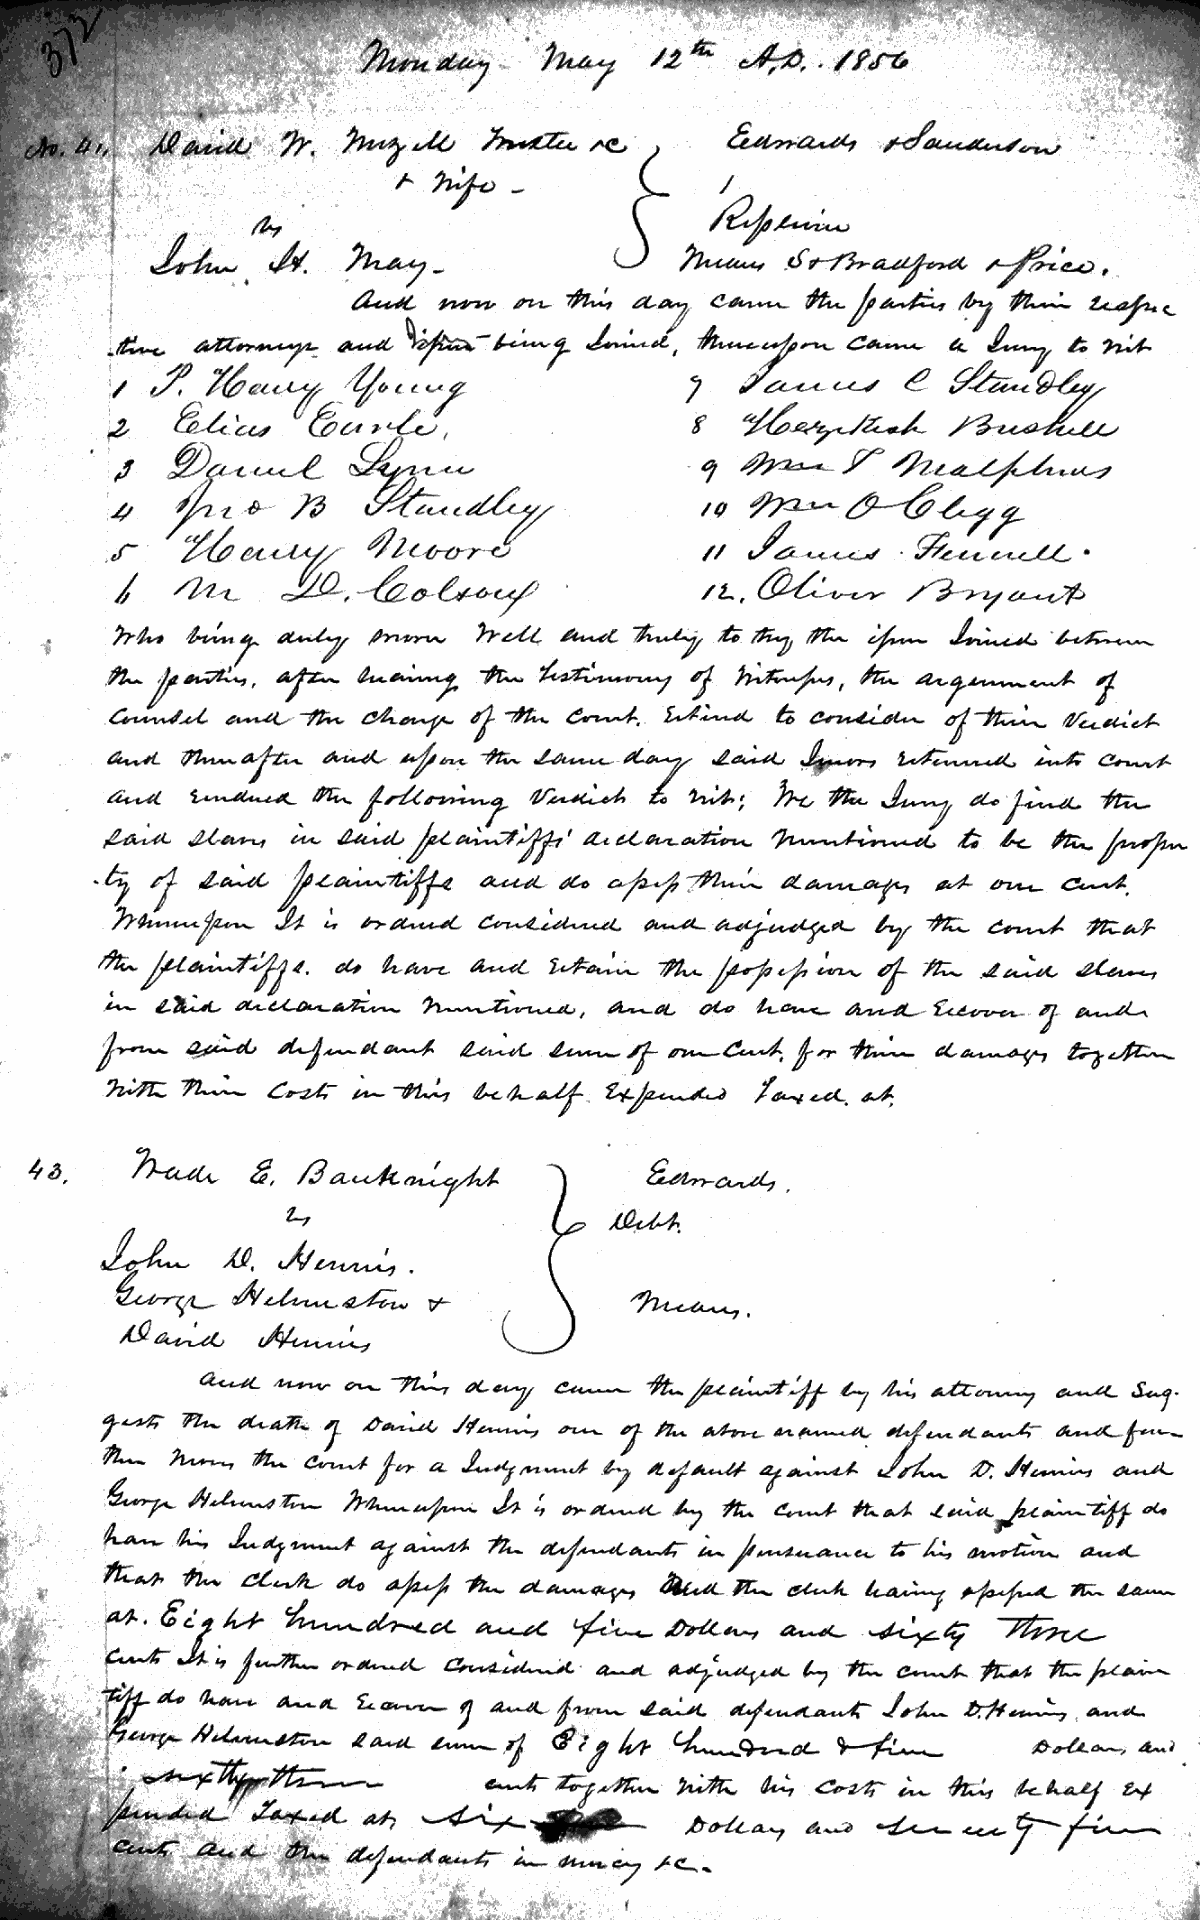 372
Monday May 12th A.D. 1856
No. 41. David W. Mizell Trustee &c Edwards & Sanderson
& Wife -
vs Replevin
John H. May - Means St Bradford & Price.
And now on this day came the parties by their respec
-tive attorneys and issue being Joined, thereupon came a Jury to wit
1 P. Henry Young 7 James C Standley
2 Elias Earle. 8 Hezekiah Bushell
3 Daniel Lynn 9 Wm T Malphurs
4 Jno B Standley 10 Wm O Clegg
5 Henry Moore 11 James Fennell.
6 M D. Colson 12. Oliver Bryant
Who being duly sworn well and truly to try the issue Joined between
the parties, after hearing the testimony of Witnesses, the argument of
Counsel and the charge of the Court. retired to consider of their Verdict
and thereafter and upon the same day said Jurors returned into Court
and rendered the following Verdict to wit; We the Jury do find the
said slaves in said plaintiffs' declaration mentioned to be the proper
-ty of said plaintiffs and do assess their damages at one cent.
Whereupon It is ordered considered and adjudged by the court that
the plaintiffs. do have and retain the possession of the said slaves
in said declaration mentioned, and do have and recover of and
from said defendant said sum of one Cent. for their damages together
with their Costs in this behalf Expended Taxed. at.
43. Wade E. Bauknight Edwards.
vs Debt.
John D. Hennis.
George Helvenston & Means.
David Hennis
And now on this day came the plaintiff by his attorney and Sug-
gests the death of David Hennis one of the above named defendants and fur-
ther moves the court for a Judgment by default against John D. Hennis and
George Helvenston Whereupon It is ordered by the court that said plaintiff do
have his Judgment against the defendants in pursuance to his motion and
that the clerk do assess the damages And the clerk having assessed the same
at. Eight hundred and five Dollars and sixty three
cents It is further ordered considered and adjudged by the court that the plain
tiff do have and recover of and from said defendants John D. Hennis and
George Helvenston said sum of Eight hundred & five Dollars and
sixty three cents together with his costs in this behalf Ex
pended Taxed at six Dollars and seventy five
cents and the defendants in mercy &c.